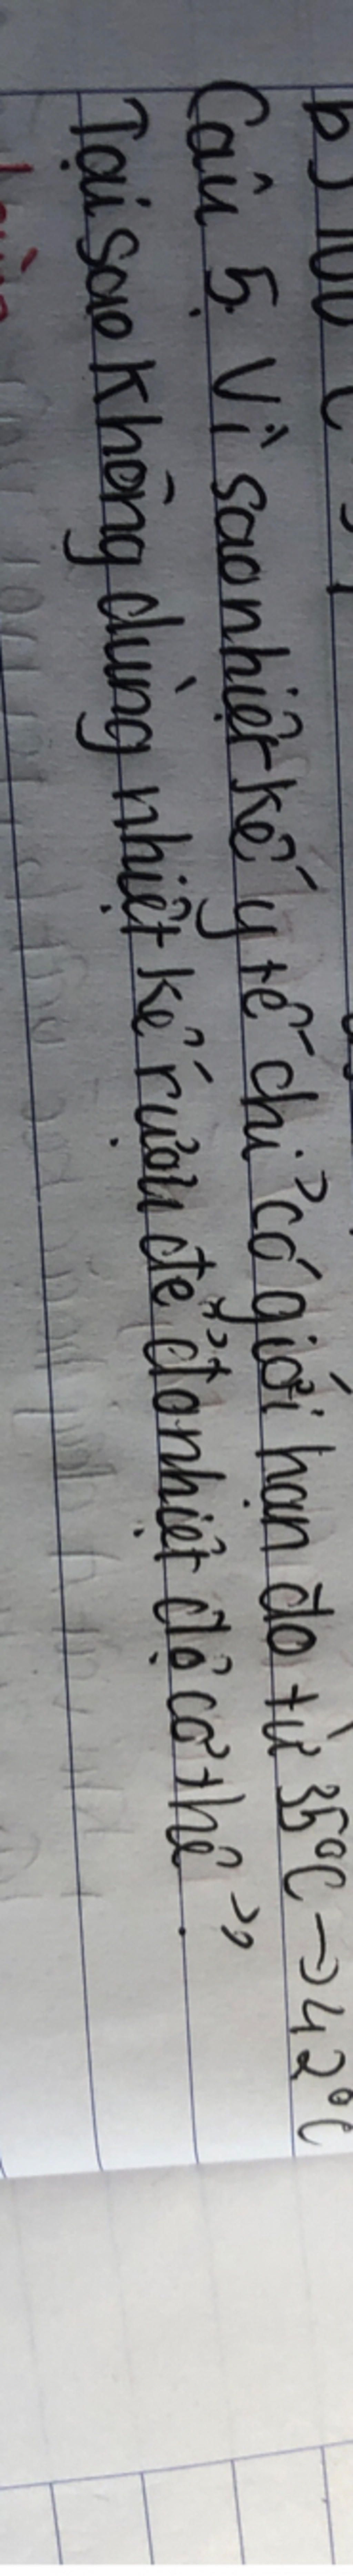 b) 100
Câu 5. Vì sao nhiệt kế y tế chỉ có giới hạn đo từ 35°C → 42°C
Tại sao không dùng nhiệt kế rượu để đo nhiệt độ cơ thể?